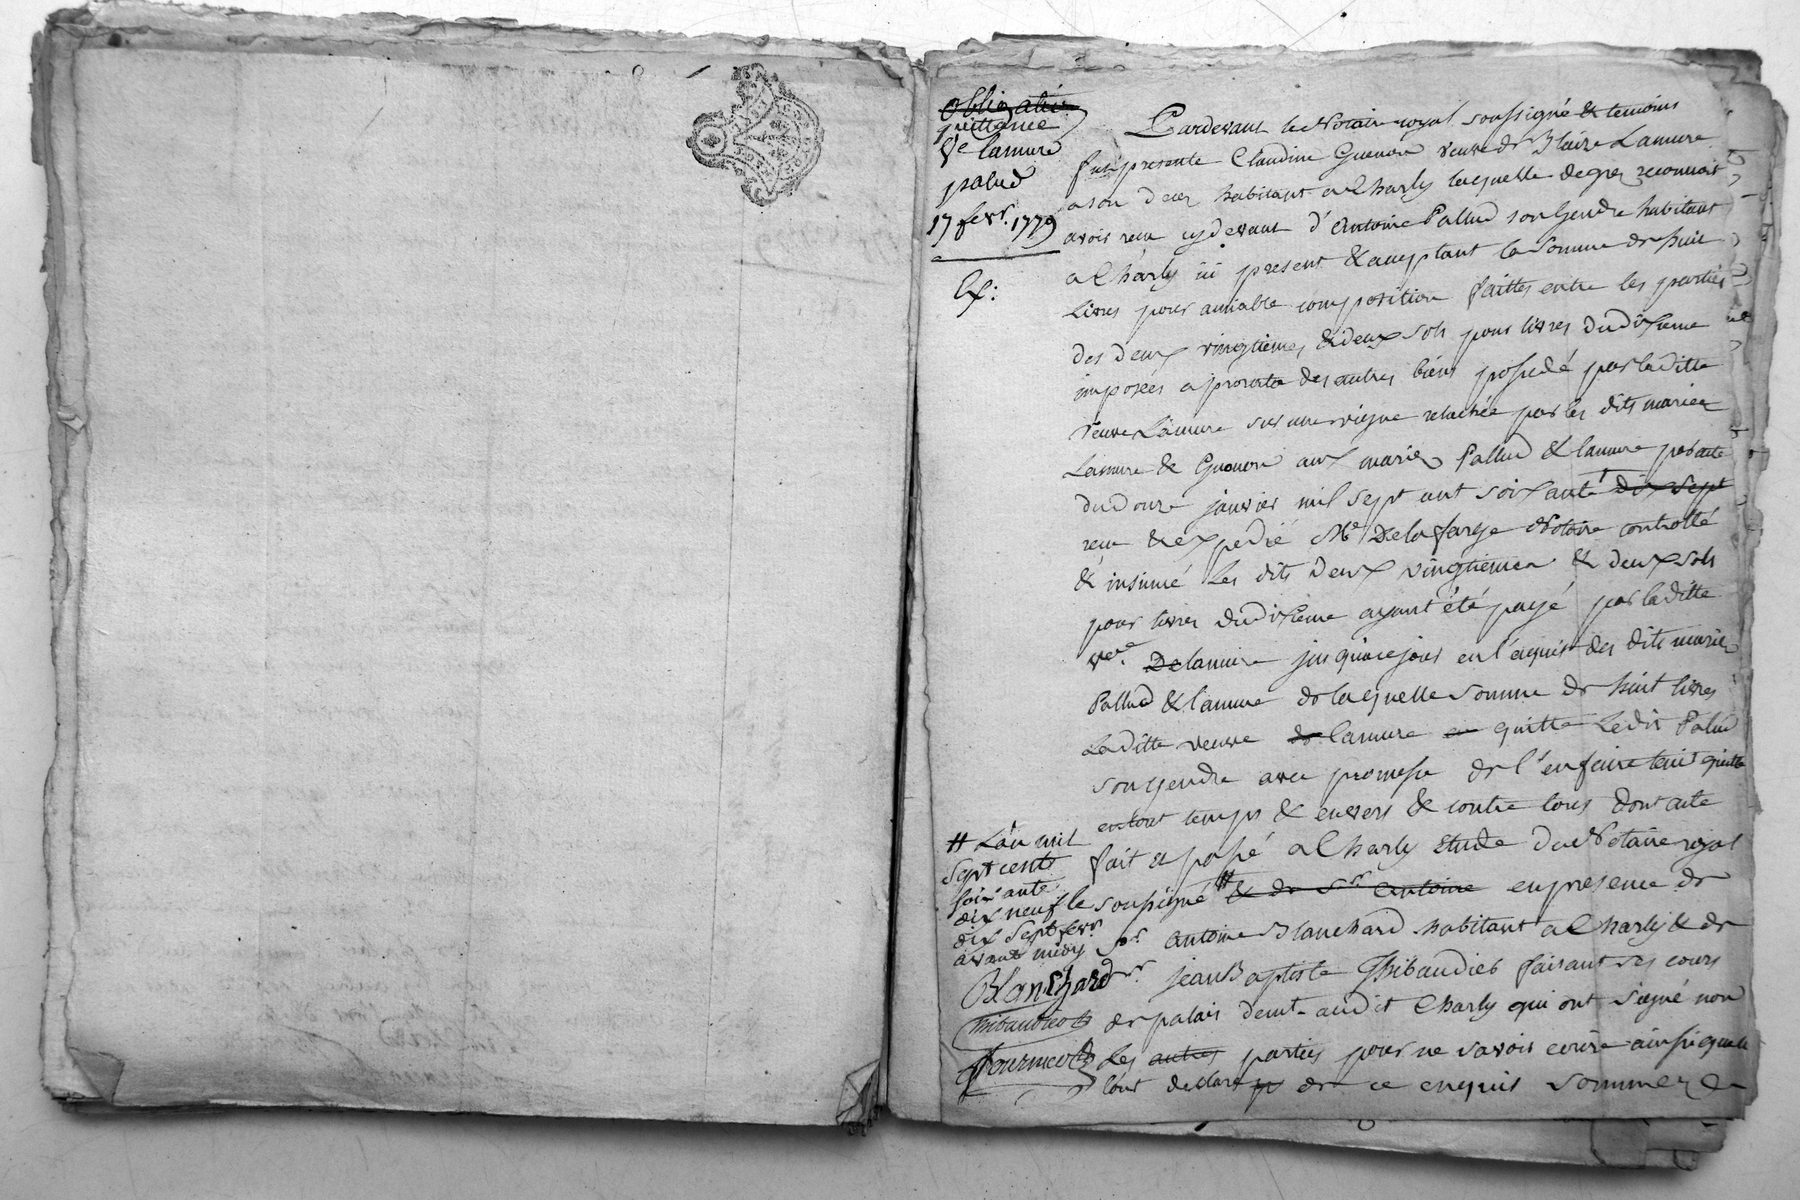 obligation
quittance
Ve lamure
palud
17 fevr. 1779
Ex:
Pardevant le Notaire royal soussigné & temoins
fut presente Claudine Guenon veuve de Blaize Lamure
a son deces habitant a Charly laquelle de gré reconnait
avoir recu cy devant d'Antoine Pallud son Gendre habitant
a Charly ici present & acceptant la Somme de huit
Livres pour amiable composition faittes entre les parties
des deux vingtiemes & deux sols pour livres du dixieme
imposées a prorata des autres biens possedé par laditte
veuve Lamure sur une vigne relachée par les dits mariez
Lamure & Guenon aux mariez Pallud & lamure par acte
du douze janvier mil sept cent soixante dix sept
recu & expedié Me Delafarge Notaire controllé
& insinué Les dits deux vingtiemes & deux sols
pour livres du dixieme ayant été payé par laditte
ve. De lamure jusqu'a ce jour en l'acquit des dits mariez
Pallud & lamure de laquelle somme de huit livres
Laditte veuve de lamure en quitte Ledit Palud
son gendre avec promesse de l'en faire tenir quitte
en tout temps & envers & contre tous dont acte
fait et passé a Charly Etude du Notaire royal
soussigné # & de Sr Antoine en presence de
sr Antoine Blanchard habitant a Charly & de
sr. jean Baptiste Thibaudier faisant ses cours
de palais demt. audit Charly qui ont signé non
Les autres parties pour ne savoir ecrire ainsi quelles
l'ont declaré de ce enquis sommez
# L'an mil
Sept cents
soixante
dix neuf le
dix Sept fevr.
avant midy
Blanchard
thibaudier